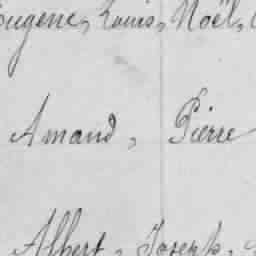 Eugène, Louis, Noël,
Amand, Pierre
Albert, Joseph,